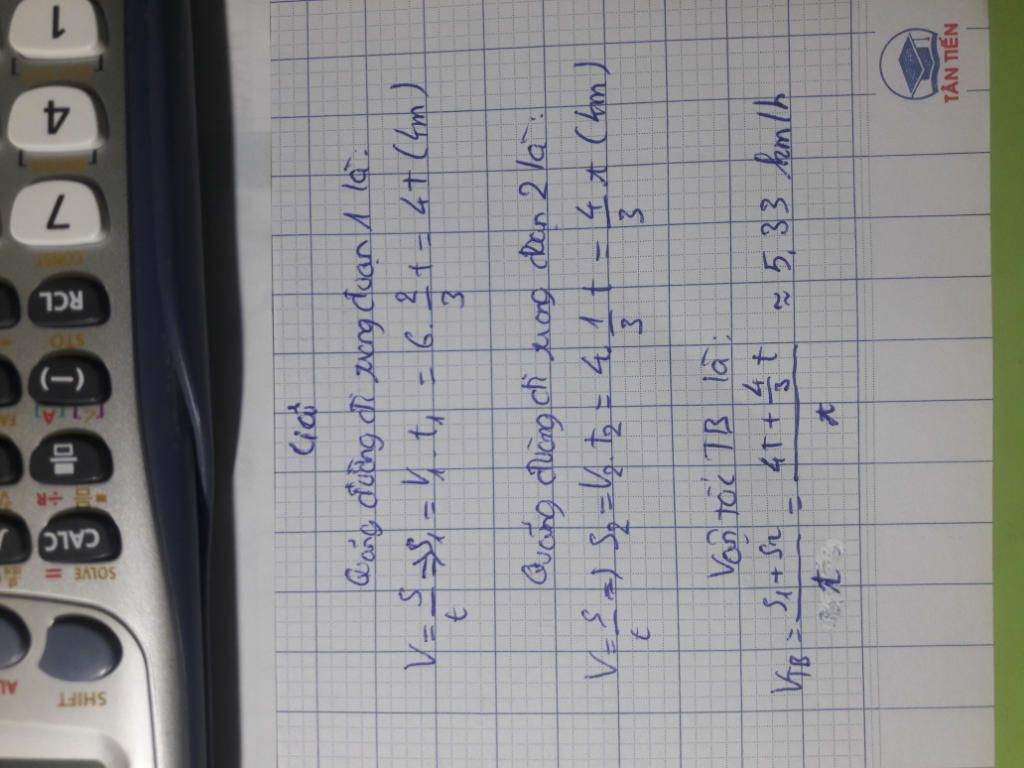 Giải
Quãng đường đi xung đoạn 1 là:
V = S/t => S1 = V1 . t1 = 6 . 2/3 t = 4t (km)
Quãng đường đi xung đoạn 2 là:
V = S/t => S2 = V2 . t2 = 4 . 1/3 t = 4/3 t (km)
Vận tốc TB là:
VTB = S1 + S2 / t = 4t + 4/3 t / t ≈ 5,33 km/h
TÂN TIẾN
1
4
7
CONST
RCL
STO
(−)
CALC
SOLVE =
SHIFT
AL